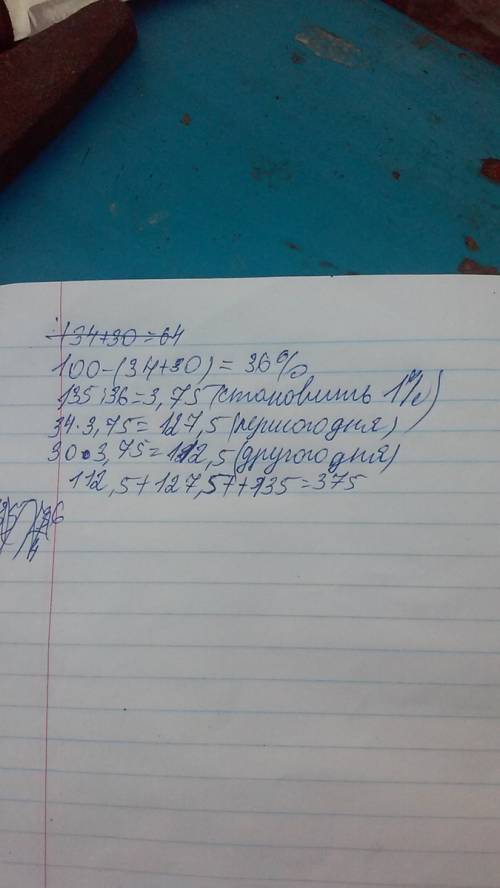 134+30=64
100-(34+30)=36%
135:36=3,75 (становить 1%)
34·3,75=127,5 (першого дня)
30·3,75=112,5 (другого дня)
112,5+127,5+135=375